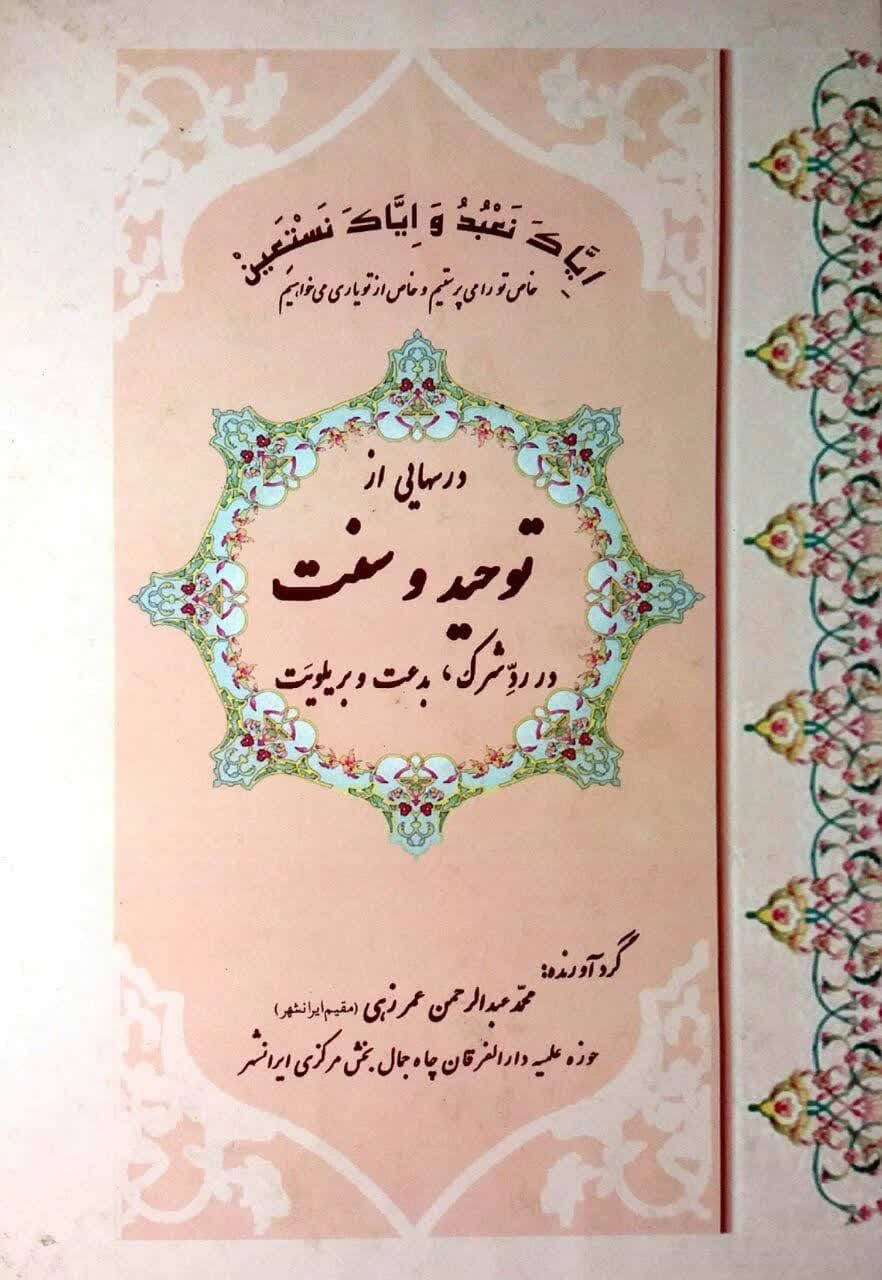 اِیَّاکَ نَعْبُدُ وَ اِیَّاکَ نَسْتَعِینْ
خاص تو را می پرستیم و خاص از تو یاری می خواهیم
درسهایی از
توحید و سنت
در ردِّ شرک، بدعت و بریلویَت
گردآورنده:
محمّد عبدالرحمن عمرزهی (مقیم ایرانشهر)
حوزه علمیه دارالفرقان چاه جمال بخش مرکزی ایرانشهر